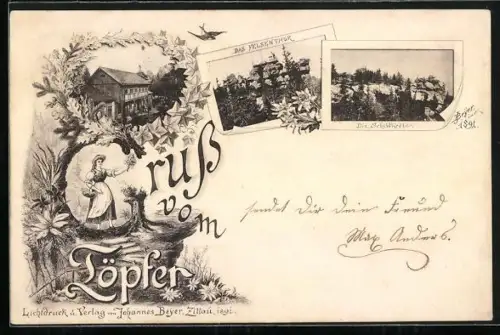 DAS FELSENTHOR
Die Schildkröten
Beyer
1891.
Gruß
vom
Töpfer
sendet Dir dein Freund
Max Anders.
Lichtdruck u. Verlag von Johannes Beyer, Zittau, 1891.